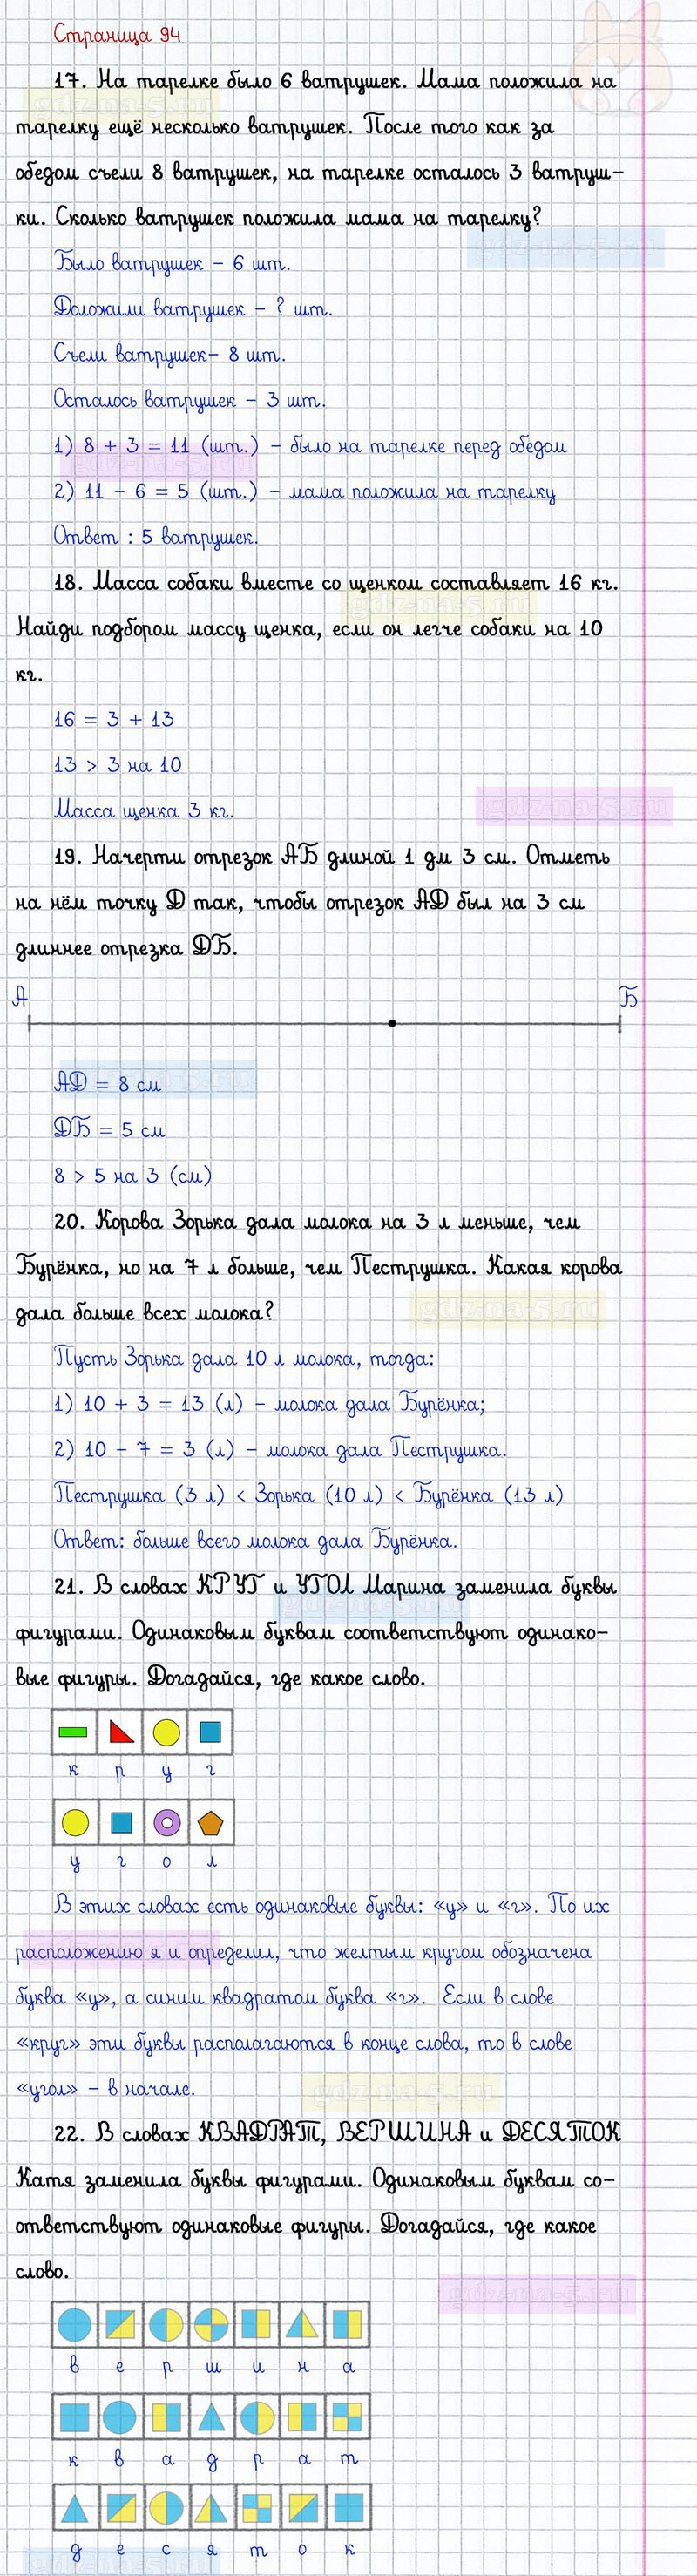 Страница 94
17. На тарелке было 6 ватрушек. Мама положила на
тарелку ещё несколько ватрушек. После того как за
обедом съели 8 ватрушек, на тарелке осталось 3 ватруш-
ки. Сколько ватрушек положила мама на тарелку?
Было ватрушек - 6 шт.
Доложили ватрушек - ? шт.
Съели ватрушек- 8 шт.
Осталось ватрушек - 3 шт.
1) 8 + 3 = 11 (шт.) - было на тарелке перед обедом
2) 11 - 6 = 5 (шт.) - мама положила на тарелку
Ответ : 5 ватрушек.
18. Масса собаки вместе со щенком составляет 16 кг.
Найди подбором массу щенка, если он легче собаки на 10
кг.
16 = 3 + 13
13 > 3 на 10
Масса щенка 3 кг.
19. Начерти отрезок АБ длиной 1 дм 3 см. Отметь
на нём точку Д так, чтобы отрезок АД был на 3 см
длиннее отрезка ДБ.
А Б
АД = 8 см
ДБ = 5 см
8 > 5 на 3 (см)
20. Корова Зорька дала молока на 3 л меньше, чем
Бурёнка, но на 7 л больше, чем Пеструшка. Какая корова
дала больше всех молока?
Пусть Зорька дала 10 л молока, тогда:
1) 10 + 3 = 13 (л) - молока дала Бурёнка;
2) 10 - 7 = 3 (л) - молока дала Пеструшка.
Пеструшка (3 л) < Зорька (10 л) < Бурёнка (13 л)
Ответ: больше всего молока дала Бурёнка.
21. В словах КРУГ и УГОЛ Марина заменила буквы
фигурами. Одинаковым буквам соответствуют одинако-
вые фигуры. Догадайся, где какое слово.
к р у г
у г о л
В этих словах есть одинаковые буквы: «у» и «г». По их
расположению я и определил, что желтым кругом обозначена
буква «у», а синим квадратом буква «г». Если в слове
«круг» эти буквы располагаются в конце слова, то в слове
«угол» - в начале.
22. В словах КВАДРАТ, ВЕРШИНА и ДЕСЯТОК
Катя заменила буквы фигурами. Одинаковым буквам со-
ответствуют одинаковые фигуры. Догадайся, где какое
слово.
в е р ш и н а
к в а д р а т
д е с я т о к
gdz-na-5.ru